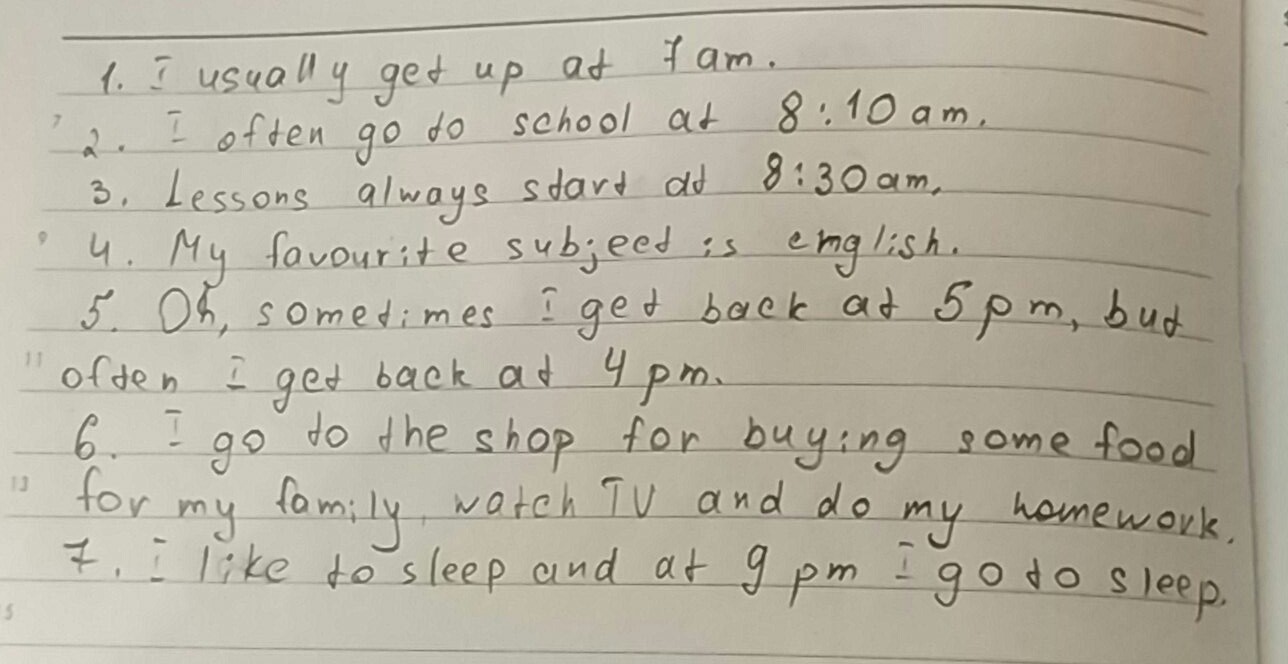 1. I usually get up at 7 am.
2. I often go to school at 8:10 am.
3. Lessons always start at 8:30 am.
4. My favourite subject is emglish.
5. Oh, sometimes I get back at 5 pm, but
often I get back at 4 pm.
6. I go to the shop for buying some food
for my family, watch TV and do my homework.
7. I like to sleep and at 9 pm I go to sleep.